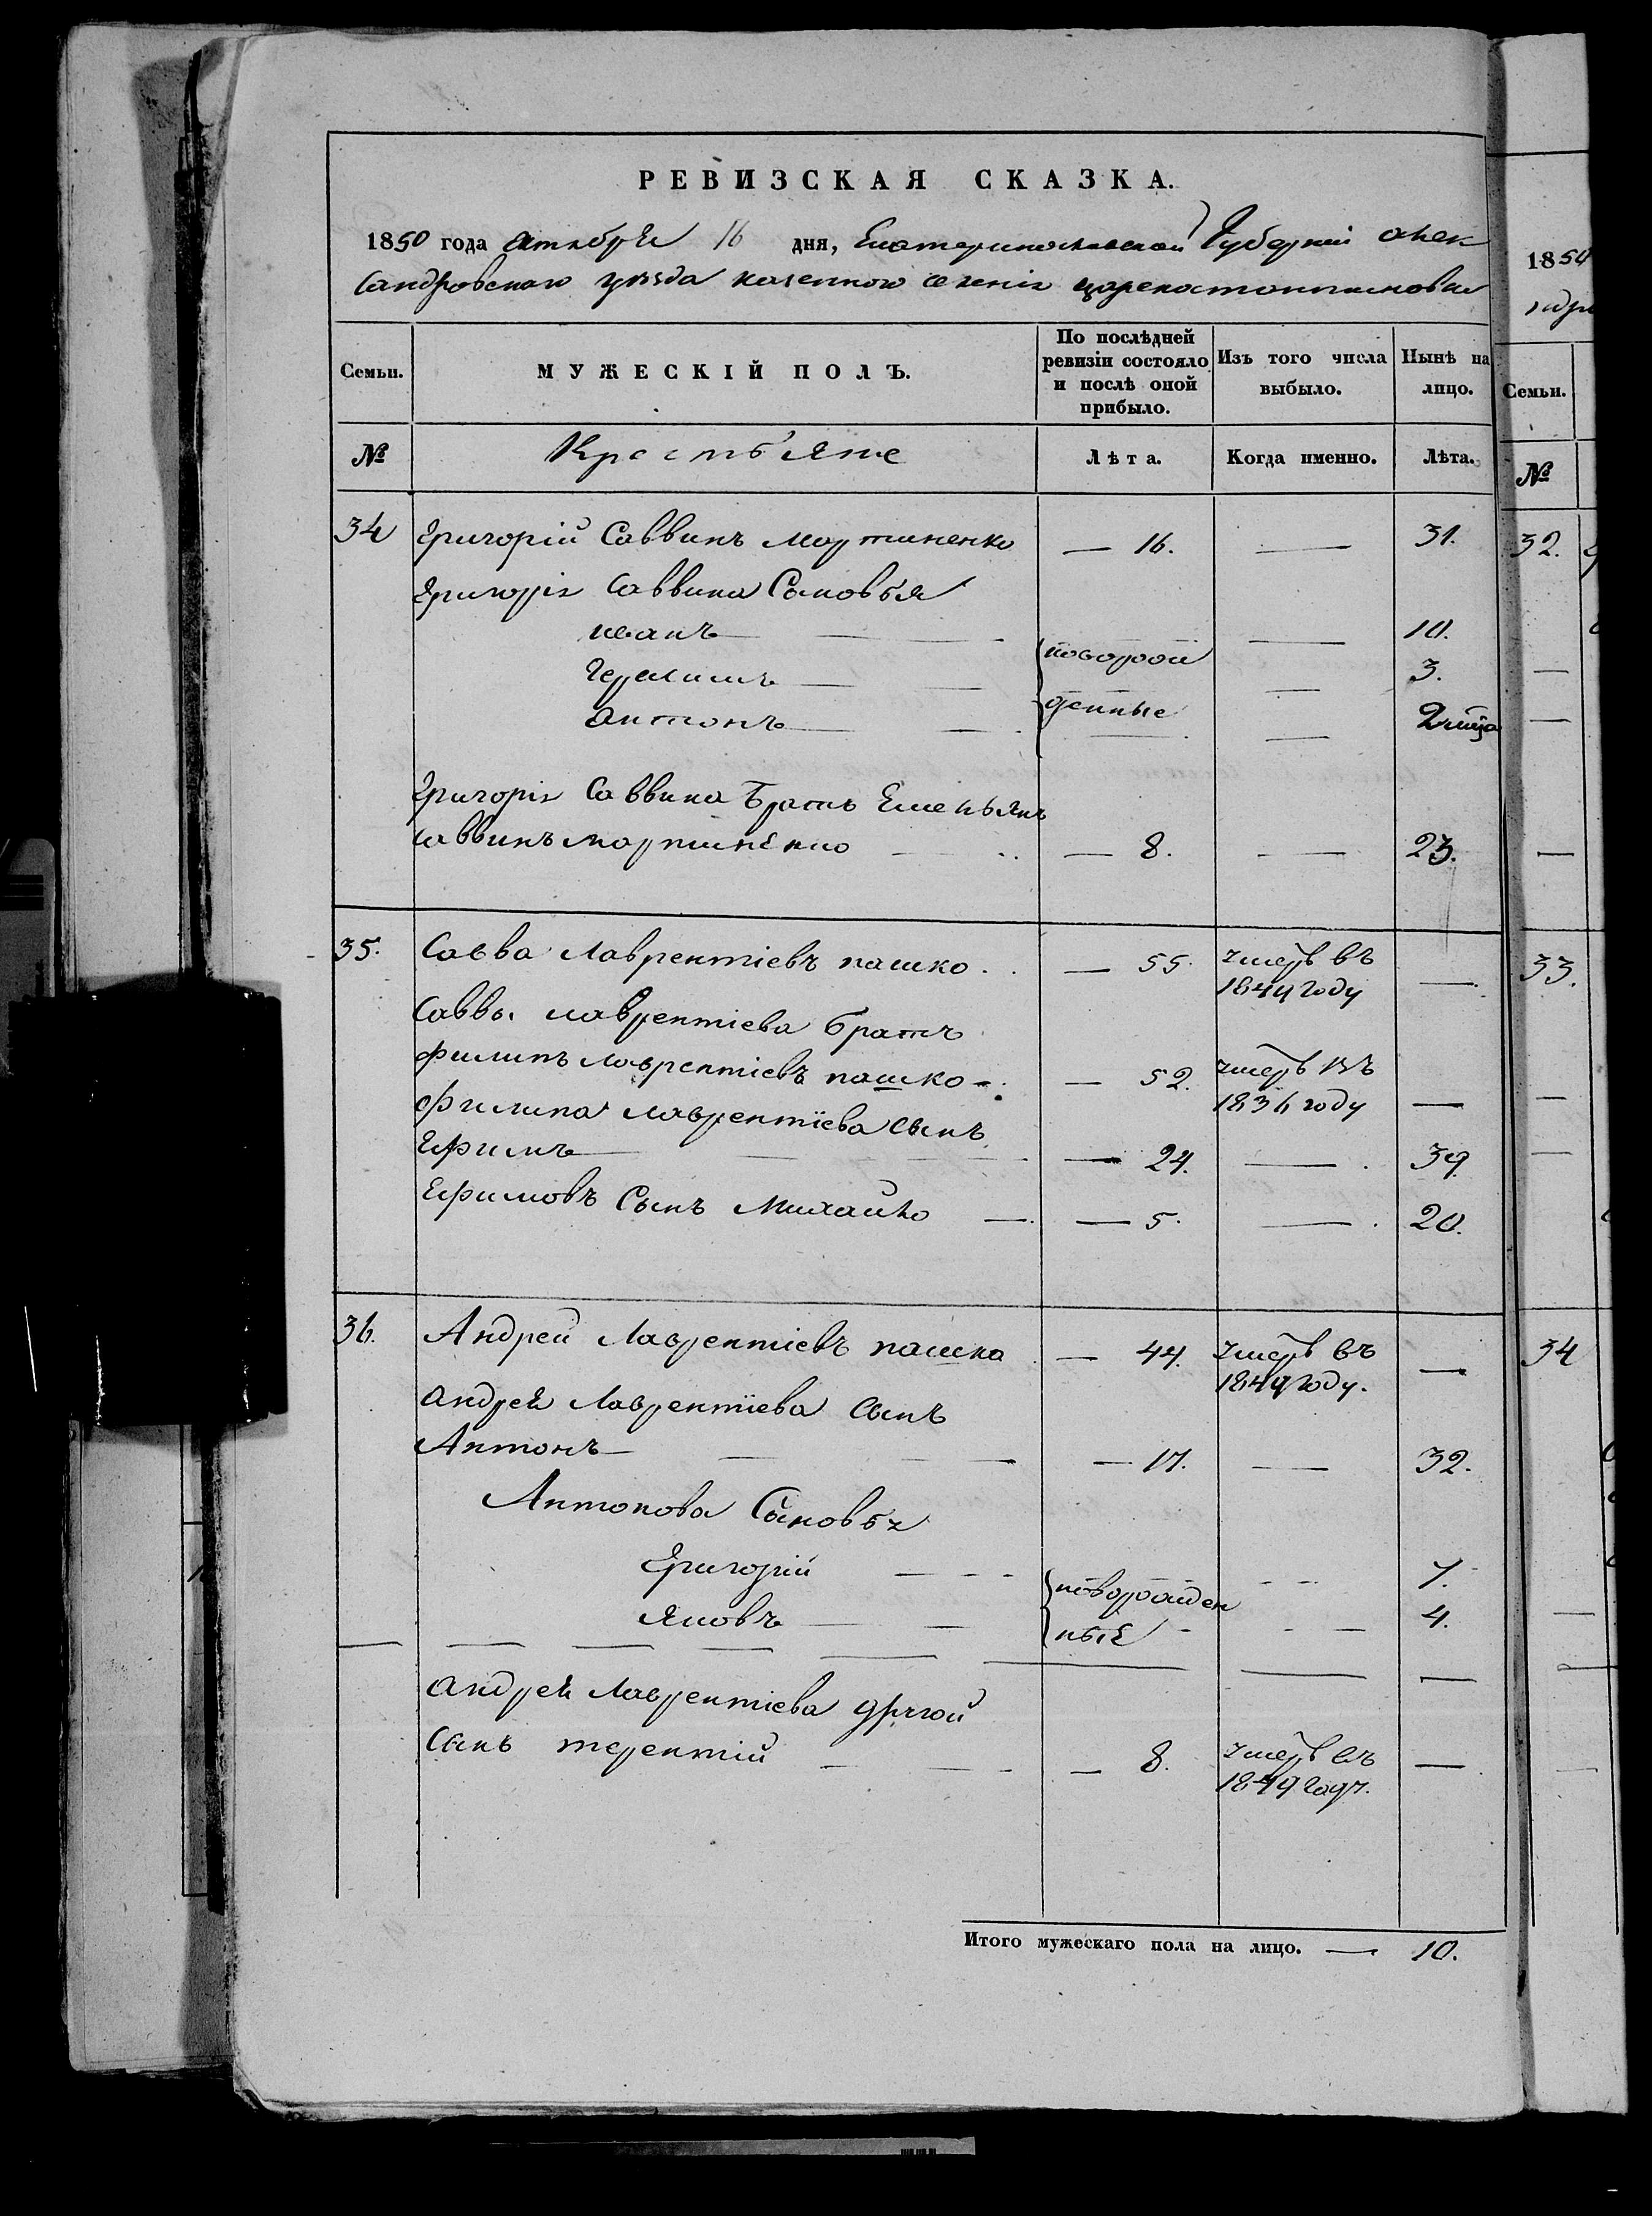 РЕВИЗСКАЯ СКАЗКА.
1850 года октября 16 дня, Екатеринославской Губерніи алек
сандровскаго уѣзда казенного селенія цареконстантиновки
Семьи. МУЖЕСКІЙ ПОЛЪ. По послѣдней ревизіи состояло и послѣ оной прибыло. Изъ того числа выбыло. Нынѣ на лицо.
№ Крестьяне Лѣта. Когда именно. Лѣта.
34 Григорій Саввинъ Мартиненко — 16. — 31.
Григорія Саввина Сыновья
иванъ — 10.
Герасимъ — новорож — 3.
антонъ — денные — 2 мца
Григорія Саввина Братъ Емельянъ
саввинъ мартиненко — 8. — 23.
35. Савва Лаврентіевъ пашко . . — 55. умеръ въ 1849 году —
Саввы лаврентіева братъ
филипъ лаврентіевъ пашко — 52. умеръ въ 1836 году —
филипа лаврентіева сынъ
Ефимъ — 24. — 39.
Ефимовъ Сынъ Михайло — 5. — 20.
36. Андрей Лаврентіевъ пашко — 44. умеръ въ 1849 году. —
андрея Лаврентіева сынъ
Антонъ — 17. — 32.
Антонова Сыновья
Григорій — новорожден — 7.
Яковъ — ные — 4.
андрея Лаврентіева другой
сынъ терентій — 8. умеръ въ 1849 году. —
Итого мужескаго пола на лицо. — 10.
1850
Семьи.
№
32.
33.
34